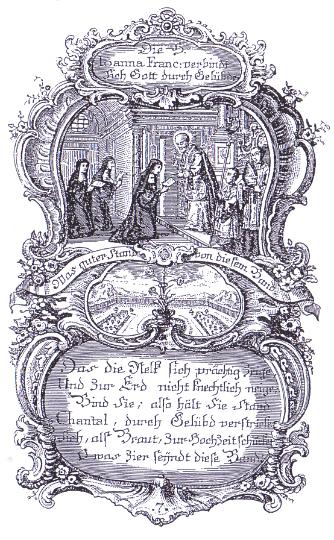 Die H.
Ioanna Franc: verbindt
sich Gott durch Gelübde
Was guter Stand von diesem Band
Das die Nelk sich prächtig zeige
Und zur Erd nicht knechtlich neige
Bind Sie; also hält Sie Stand
Chantal, durch Gelübd verstricket
sich, als Braut, zur Hochzeit schicket
O was Zier seÿndt diese Band!
7.